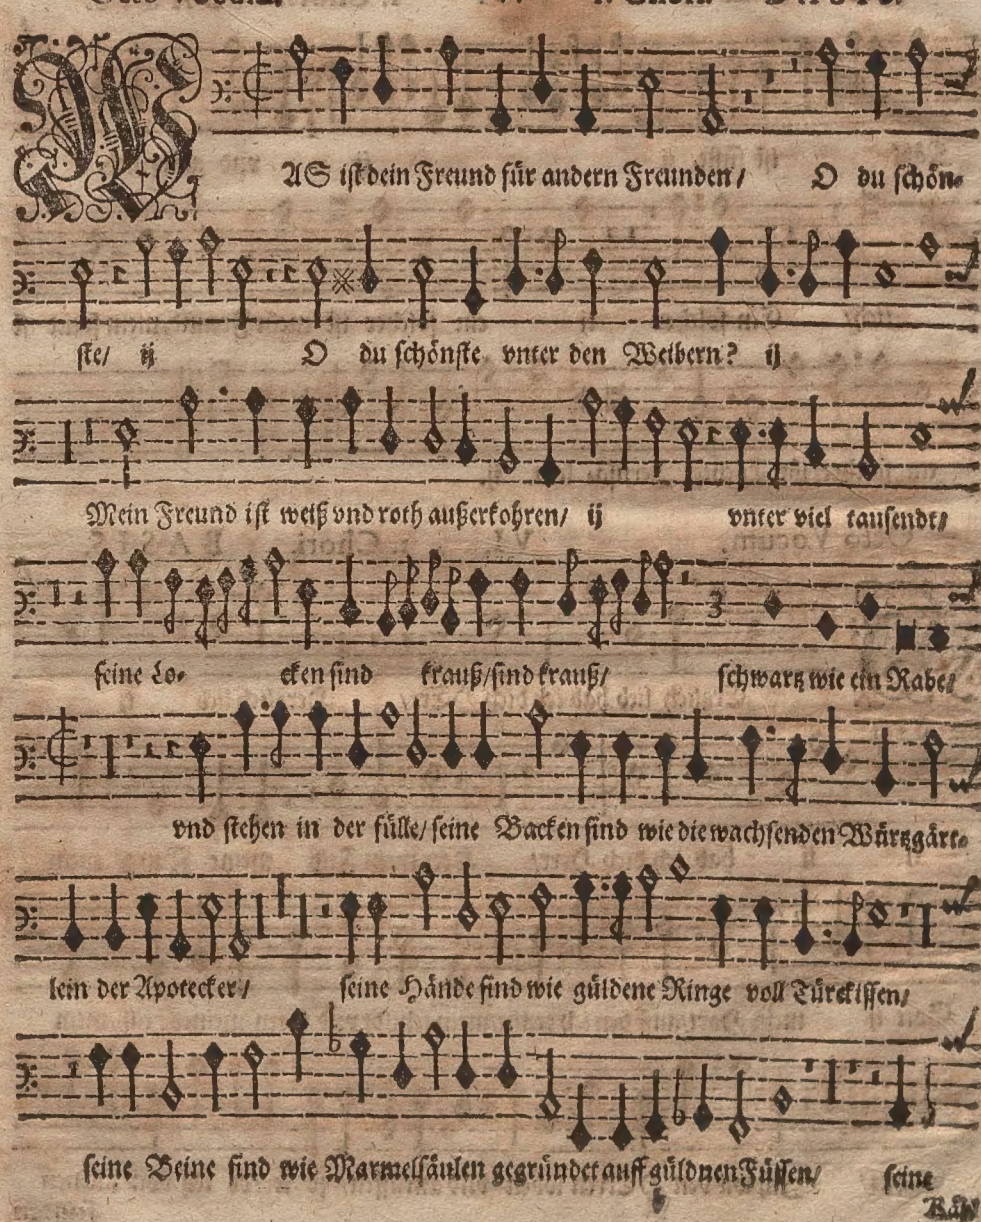 WAS ist dein Freund für andern Freunden/ O du schön-
ste/ ij O du schönste vnter den Weibern? ij
Mein Freund ist weiß vnd roth außerkohren/ ij vnter viel tausendt/
seine Lo- cken sind krauß/sind krauß/ schwartz wie ein Rabe/
3
vnd stehen in der fülle/ seine Backen sind wie die wachsenden Würtzgärt-
lein der Apotecker/ seine Hände sind wie güldene Ringe voll Türckissen/
seine Beine sind wie Marmelsäulen gegründet auff güldnen Füssen/ seine